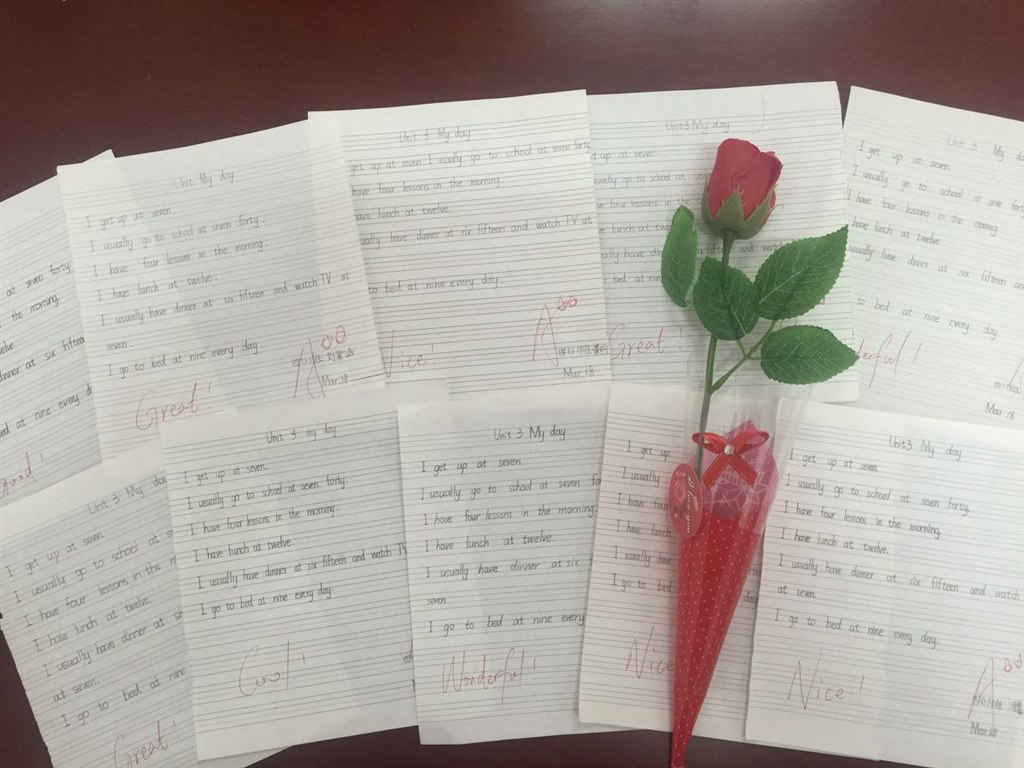 at seven forty
the morning.
dinner at six fifteen
bed at nine every d
Good!
Unit My day
I get up at seven.
I usually go to school at seven forty.
I have four lessons in the morning.
I have lunch at twelve.
I usually have dinner at six fifteen and watch TV at
seven.
I go to bed at nine every day
Great!
A
Mar.18
Unit 3 My day
get up at seven. I usually go to school at seven forty
have four lessons in the morning.
have lunch at twelve.
have dinner at six fifteen and watch TV at
to bed at nine every day.
Nice!
A
Mar.18
Unit 3 My day
up at seven.
usually go to school at
four lessons in the
lunch at twelve
have dinner at six fifteen and
to bed at nine
Great!
Unit 3 My
I get up at seven.
I usually go to school at seven
I have four lessons in the morning
have lunch at twelve.
usually have dinner at six fifteen
to bed at nine every day
Mar.18
Unit 3 My day
I get up at seven.
I usually go to school at
I have four lessons in the
I have lunch at twelve.
I usually have dinner at
at seven.
I go to bed at nine
Great!
Unit 3 my day
I get up at seven.
I usually go to school at seven forty.
I have four lessons in the morning.
I have lunch at twelve.
I usually have dinner at six fifteen and watch TV
I go to bed at nine every day.
Cool!
Unit 3 My day
I get up at seven.
I usually go to school at seven
I have four lessons in the morning.
I have lunch at twelve.
I usually have dinner at six
seven.
I go to bed at nine every
Wonderful!
I get up
I usually
I have four
I have lunch
I usually have
I go to bed
Nice
I love you
Unit 3 My day
I get up at seven.
I usually go to school at seven forty.
I have four lessons in the morning.
I have lunch at twelve.
I usually have dinner at six fifteen and watch
at seven.
I go to bed at nine every day.
Nice!
A
Mar.18